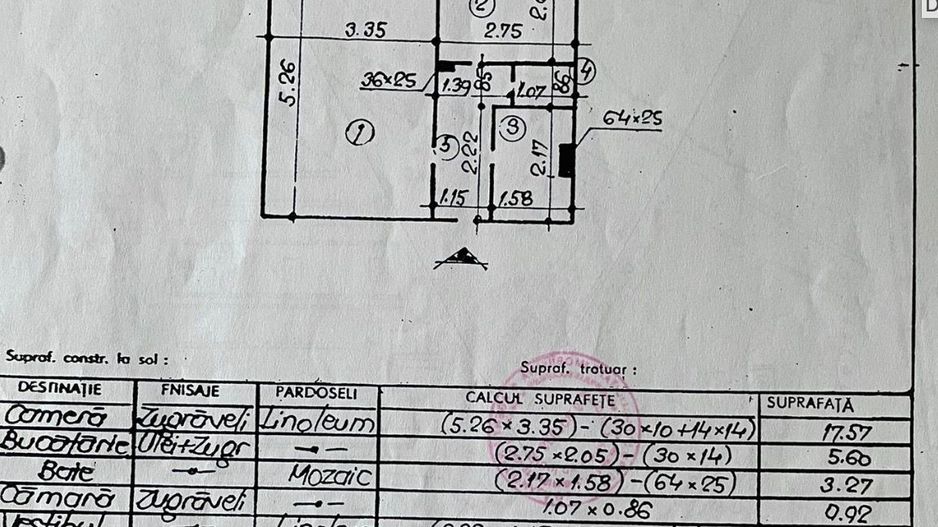 D
2
2.0
3.35
2.75
5.26
36×25
1.39
85
1.07
86
4
64×25
1
5
2.22
3
2.17
1.15
1.58
Supraf. constr. la sol :
Supraf. trotuar :
DESTINAȚIE FNISAJE PARDOSELI CALCUL SUPRAFEȚE SUPRAFAȚĂ
Cameră Zugrăveli Linoleum (5.26 × 3.35) – (30×10+14×14) 17.57
Bucătărie Ulei+Zugr —•— (2.75 × 2.05) – (30 × 14) 5.60
Baie —•— Mozaic (2.17 × 1.58) – (64 × 25) 3.27
Cămară Zugrăveli —•— 1.07 × 0.86 0.92
Vestibul